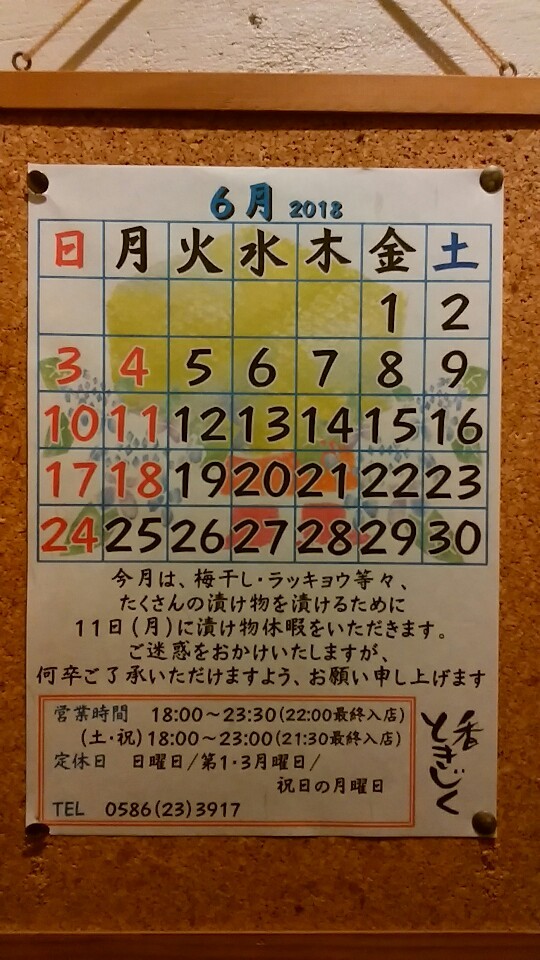 6月 2018
日 月 火 水 木 金 土
1 2
3 4 5 6 7 8 9
10 11 12 13 14 15 16
17 18 19 20 21 22 23
24 25 26 27 28 29 30
今月は、梅干し・ラッキョウ等々、
たくさんの漬け物を漬けるために
11日(月)に漬け物休暇をいただきます。
ご迷惑をおかけいたしますが、
何卒ご了承いただけますよう、お願い申し上げます
営業時間 18:00～23:30(22:00最終入店)
(土・祝)18:00～23:00(21:30最終入店)
定休日 日曜日/第1・3月曜日/
祝日の月曜日
TEL 0586(23)3917
香
ときじく